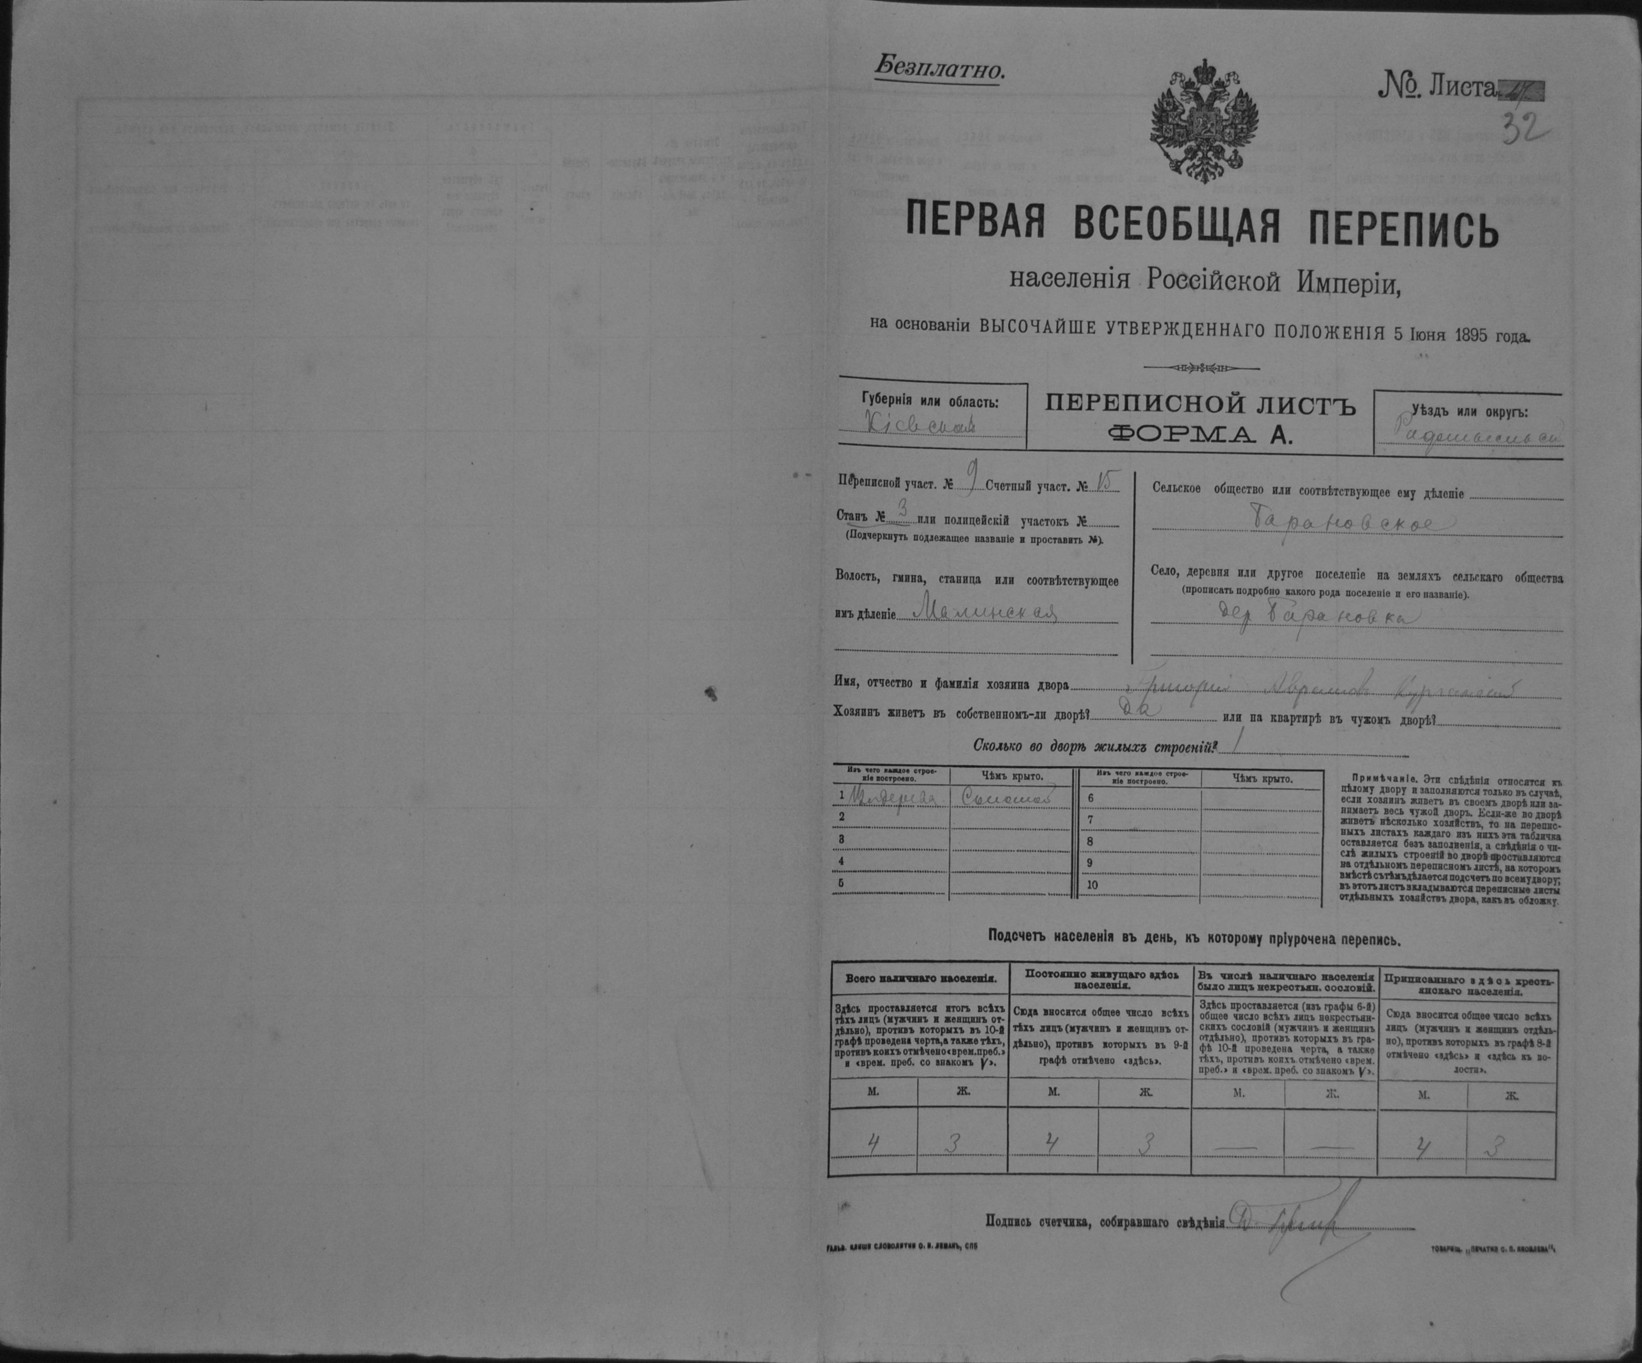 Безплатно.
№. Листа
32
ПЕРВАЯ ВСЕОБЩАЯ ПЕРЕПИСЬ
населенія Россійской Имперіи,
на основаніи ВЫСОЧАЙШЕ УТВЕРЖДЕННАГО ПОЛОЖЕНІЯ 5 Іюня 1895 года.
Губернія или область:
Кіевская
ПЕРЕПИСНОЙ ЛИСТЪ
ФОРМА А.
Уѣздъ или округъ:
Радомысльскій
Переписной участ. № 9 Счетный участ. № 15
Станъ № 3 или полицейскій участокъ №
(Подчеркнуть подлежащее названіе и проставить №).
Волость, гмина, станица или соотвѣтствующее
имъ дѣленіе Малинская
Сельское общество или соотвѣтствующее ему дѣленіе
Барановское
Село, деревня или другое поселеніе на земляхъ сельскаго общества
(прописать подробно какого рода поселеніе и его названіе).
дер Барановка
Имя, отчество и фамилія хозяина двора Григорій
Хозяинъ живетъ въ собственномъ-ли дворѣ? Да или на квартирѣ въ чужомъ дворѣ?
Сколько во дворѣ жилыхъ строеній? 1
Изъ чего каждое строе-
ніе построено.
Чѣмъ крыто.
Изъ чего каждое строе-
ніе построено.
Чѣмъ крыто.
1 Изъ дерева Соломой 6
2 7
3 8
4 9
5 10
Примѣчаніе. Эти свѣдѣнія относятся къ
цѣлому двору и заполняются только въ случаѣ,
если хозяинъ живетъ въ своемъ дворѣ или за-
нимаетъ весь чужой дворъ. Если-же во дворѣ
живетъ нѣсколько хозяйствъ, то на перепис-
ныхъ листахъ каждаго изъ нихъ эта табличка
оставляется безъ заполненія, а свѣдѣнія о чи-
слѣ жилыхъ строеній во дворѣ проставляются
на отдѣльномъ переписномъ листѣ, на которомъ
вмѣстѣ съ тѣмъ дѣлается подсчетъ по всему двору;
въ этотъ листъ вкладываются переписные листы
отдѣльныхъ хозяйствъ двора, какъ въ обложку.
Подсчетъ населенія въ день, къ которому пріурочена перепись.
Всего наличнаго населенія.
Здѣсь проставляется итогъ всѣхъ
тѣхъ лицъ (мужчинъ и женщинъ от-
дѣльно), противъ которыхъ въ 10-й
графѣ проведена черта, а также тѣхъ,
противъ коихъ отмѣчено «врем. преб.»
и «врем. преб. со знакомъ V».
Постоянно живущаго здѣсь
населенія.
Сюда вносится общее число всѣхъ
тѣхъ лицъ (мужчинъ и женщинъ от-
дѣльно), противъ которыхъ въ 9-й
графѣ отмѣчено «здѣсь».
Въ числѣ наличнаго населенія
было лицъ некрестьян. сословій.
Здѣсь проставляется (изъ графы 6-й)
общее число всѣхъ лицъ некрестьян-
скихъ сословій (мужчинъ и женщинъ
отдѣльно), противъ которыхъ въ гра-
фѣ 10-й проведена черта, а также
тѣхъ, противъ коихъ отмѣчено «врем.
преб.» и «врем. преб. со знакомъ V».
Приписаннаго здѣсь кресть-
янскаго населенія.
Сюда вносится общее число всѣхъ
лицъ (мужчинъ и женщинъ отдѣль-
но), противъ которыхъ въ графѣ 8-й
отмѣчено «здѣсь» и «здѣсь въ во-
лости».
М. Ж. М. Ж. М. Ж. М. Ж.
4 3 4 3 — — 4 3
Подпись счетчика, собиравшаго свѣдѣнія
ГАЛЬВ. КЛИШЕ СЛОВОЛИТНИ О. И. ЛЕМАНЪ, СПБ
ТОВАРИЩ. „ПЕЧАТНЯ С. П. ЯКОВЛЕВА“.